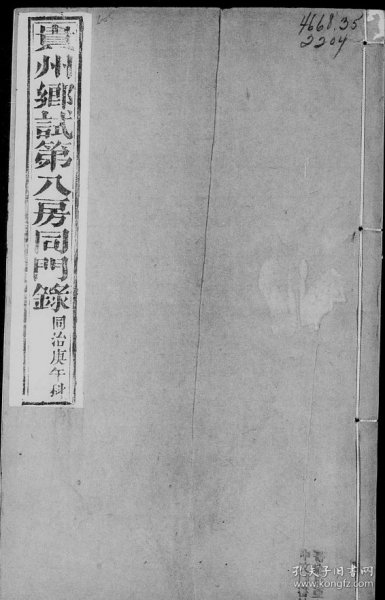 貴州鄉試第八房同門錄
同治庚午科
4668.35
2204
孔夫子旧书网